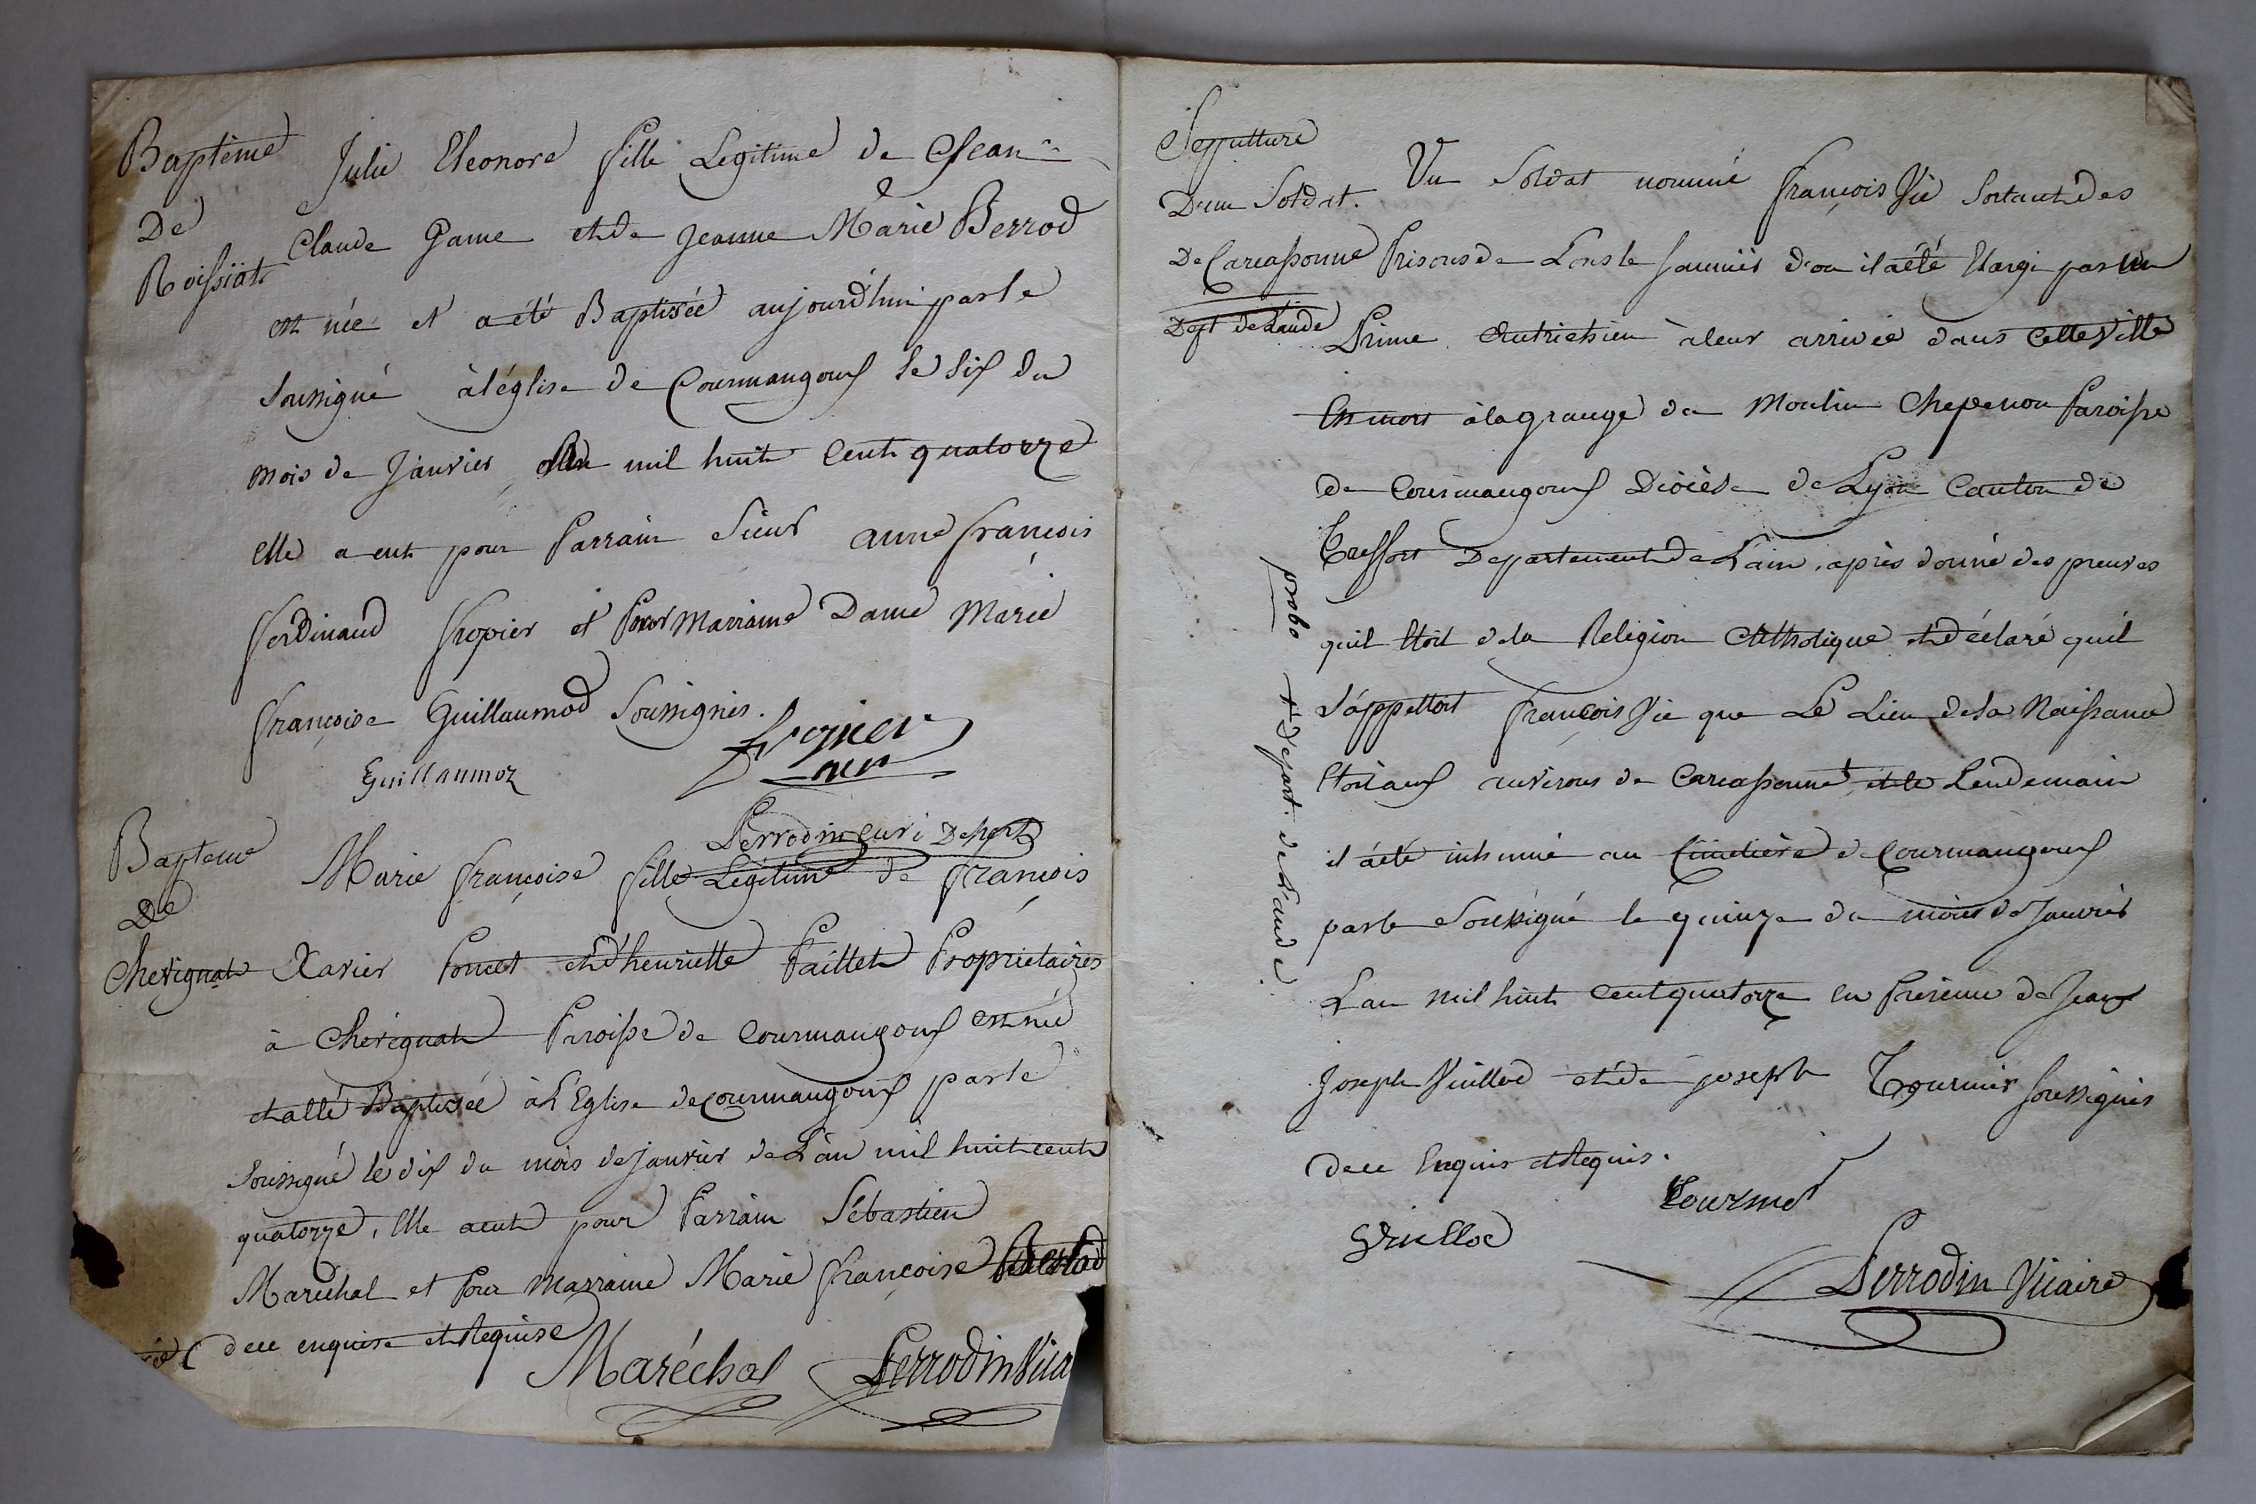 Baptême
De
Roissiat
Julie Eleonore fille Legitime de Jean
Claude Game et de Jeanne Marie Berrod
est née et a été Baptisée aujourd'hui par le
soussigné à l'église de Courmangoux le six du
mois de Janvier mil huit cent quatorze
elle a eut pour Parrain Sieur anne françois
ferdinand fropier et Pour Marraine Dame Marie
françoise Guillaumod Soussignés.
Guillaumoz
Perrodin
Bapteme
De
Chevignat
Marie françoise fille Legitime de françois
Xavier Poncet et d'henriette Paillet Proprietaires
à Chevignat Paroisse de Courmangoux est née
et a été Baptisée à L'Eglise de Courmangoux par le
Soussigné le dix du mois de janvier de L'an mil huit cent
quatorze, Elle a eut pour Parrain Sébastien
Maréchal et Pour Marraine Marie françoise
de ce enquise et Requise
Maréchal Perrodin Vica
Sepulture
D'un Soldat.
De Carcassonne
Dept de L'aude
Un Soldat nommé françois Vié Sortant des
Prisons de Lons le Saunier d'ou il a été Elargi par un
Prince Autrichien à leur arrivée dans cette Ville
Est mort à la grange du Moulin Chepenon Paroisse
de Courmangoux Diocèse de Lyon Canton de
Treffort Departement de L'ain, après donné des preuves
quil Etoit de la Religion Catholique et Déclaré quil
s'appelloit françois Vié que Le Lieu de sa Naissance
Etoit aux environs de Carcassonne + et le Lendemain
il a été inhumé au Cimetière de Courmangoux
par le Soussigné le quinze du mois de Janvier
L'an mil huit cent quatorze en Présence de Jean
Joseph Vuillod et de joseph Tournier soussignés
de ce Enquis et Requis.
Vuillod
Tournier
Perrodin Vicaire
probo + Depart. de L'aude.